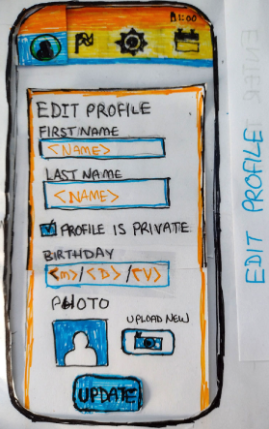 EDIT PROFILE
FIRST NAME
<NAME>
LAST NAME
<NAME>
PROFILE IS PRIVATE
BIRTHDAY
<m>/<D>/<Y>
PHOTO
UPLOAD NEW
UPDATE
EDIT PROFILE